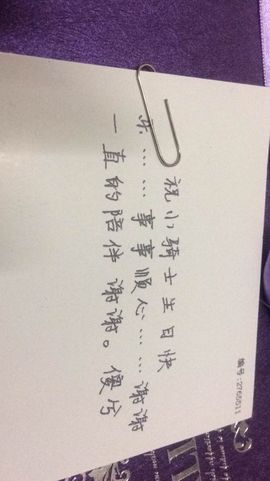 编号:
祝小骑士生日快
乐……事事顺心……谢谢
一直的陪伴 谢谢。傻兮